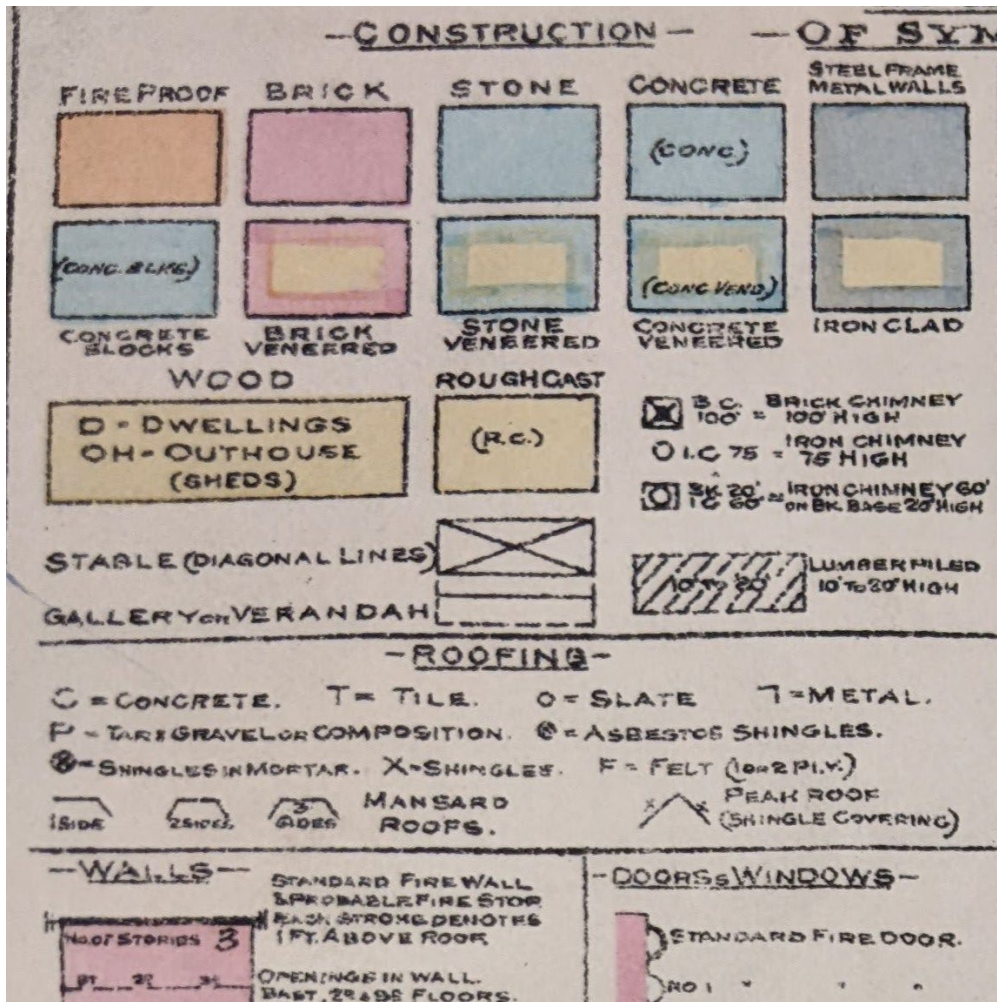 -CONSTRUCTION-
-OF SYM
FIREPROOF
BRICK
STONE
CONCRETE
STEEL FRAME
METAL WALLS
(CONC)
(CONC. BLKS.)
(CONC VEND)
CONCRETE
BLOCKS
BRICK
VENEERED
STONE
VENEERED
CONCRETE
VENEERED
IRON CLAD
WOOD
ROUGHCAST
D - DWELLINGS
OH - OUTHOUSE
(SHEDS)
(R.C.)
B.C. BRICK CHIMNEY
100' = 100' HIGH
I.C 75 = IRON CHIMNEY
75 HIGH
BK 20' = IRON CHIMNEY 60'
I C 60' ON BK. BASE 20' HIGH
STABLE (DIAGONAL LINES)
GALLERY OR VERANDAH
10 TO 20'
LUMBER PILED
10' TO 20' HIGH
-ROOFING-
C = CONCRETE. T = TILE. O = SLATE ⅂ = METAL.
P - TAR & GRAVEL OR COMPOSITION. = ASBESTOS SHINGLES.
= SHINGLES IN MORTAR. X = SHINGLES. F = FELT (1 OR 2 PLY.)
1 SIDE
2 SIDES
3 SIDES
MANSARD
ROOFS.
X X
PEAK ROOF
(SHINGLE COVERING)
-WALLS-
STANDARD FIRE WALL
& PROBABLE FIRE STOP
EACH STROKE DENOTES
1 FT. ABOVE ROOF
No. OF STORIES 3
OPENINGS IN WALL.
-DOORS & WINDOWS-
STANDARD FIRE DOOR.
NO 1 " " "